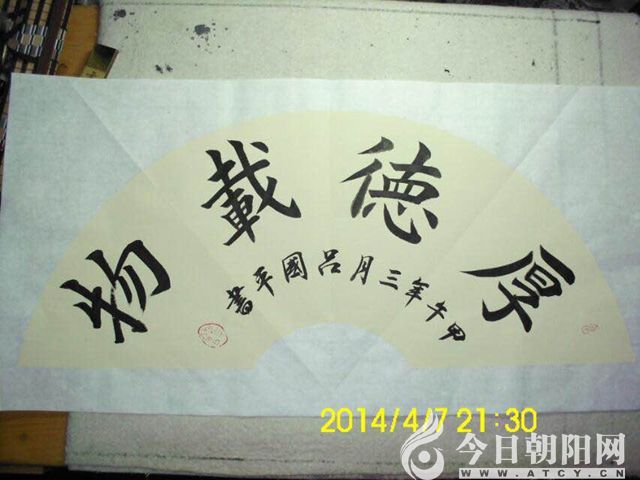 厚德載物
甲午年三月吕國平書
2014/4/7 21:30
今日朝阳网
WWW.ATCY.CN